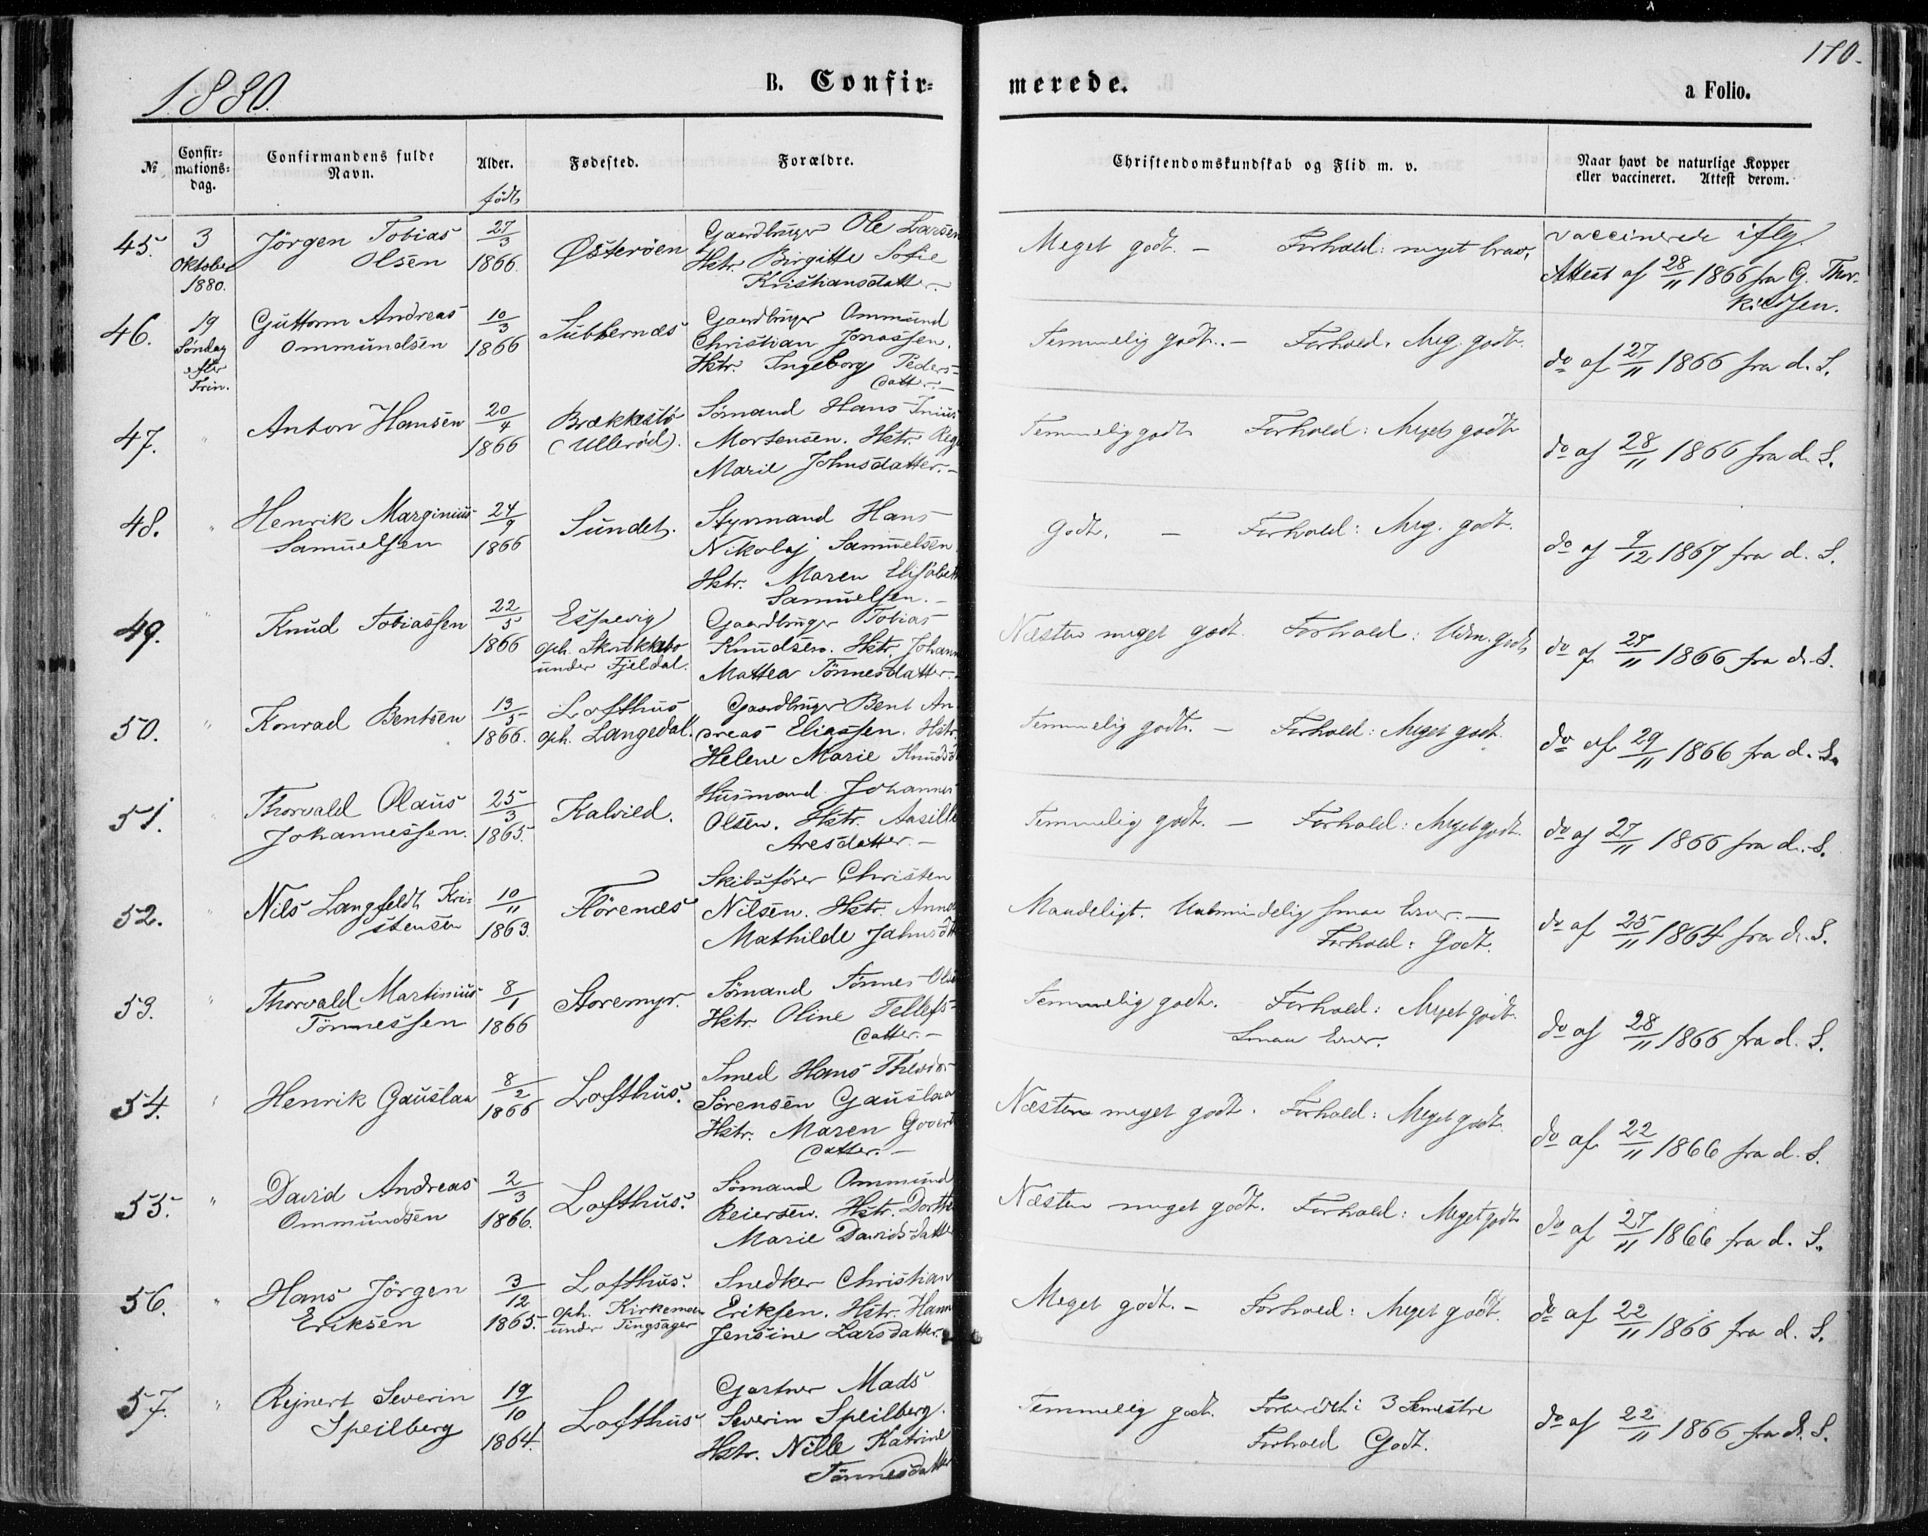 1880.
B. Confir-
merede.
a Folio.
№
Confir-
mations-
dag.
Confirmandens fulde
Navn.
Alder.
født
Fødested.
Forældre.
Christendomskundskab og Flid m. v.
Naar havt de naturlige Kopper
eller vaccineret. Attest derom.
45.
3
Oktober
1880.
Jörgen Tobias
Olsen
27/3
1866.
Østeröen
Gaardbruger Ole Larsen
Hstr. Birgitte Sofie
Kristiansdatter.
Meget godt. — Forhold: meget brav.
vaccinerede iflg.
Attest af 28/11 1866 fra G. Thor-
kildsen.
46.
19
Søndag
efter
Trin.
Guttorm Andreas
Ommundsen
10/3
1866
Gaardbruger Ommund
Christian Jonassen.
Hstr. Ingeborg Peders-
datter.—
Temmelig godt. — Forhold. Meg. godt.
do af 27/11 1866 fra d. S.
47.
"
Anton Hansen
20/4
1866
Brækkestø
(Ulleröd).
Sömand Hans
Mortensen. Hstr.
Marie Johnsdatter.—
Temmelig godt Forhold: Meget godt
do af 28/11 1866 fra d. S.
48.
"
Henrik Marginius
Samuelsen
24/9
1866
Sundet.
Styrmand Hans
Nikolaj Samuelsen
Hstr. Maren Elisabeth
Samuelsen.—
Godt. — Forhold: Meg. godt.
do af 9/12 1867 fra d. S.
49.
"
Knud Tobiassen
22/5
1866
Espevig
oph.
under Fjeldal.
Gaardbruger Tobias
Knudsen. Hstr. Johanne
Mattea Tönnesdatter.—
Næsten meget godt. Forhold: Udm. godt
do af 27/11 1866 fra d. S.
50.
"
Konrad Bentsen
13/5
1866.
Lofthus
oph. Langedal.
Gaardbruger Bent An-
dreas Eliassen. Hstr.
Helene Marie Knudsd
Temmelig godt. — Forhold: Meget godt.
do af 29/11 1866 fra d. S.
51.
"
Thorvald Olaus
Johannessen.
25/3
1865.
Kalvild.
Husmand Johannes
Olsen. Hstr. Aasille
Aresdatter.—
Temmelig godt. — Forhold: Meget godt.
do af 27/11 1866 fra d. S.
52.
"
Nils Langfeldt Kri-
stensen
10/11
1863.
Flörenæs
Skibsförer Christen
Nilsen. Hstr. Anne
Mathilde Jahnsdtt
Maadeligt. Ualmindelig smaa Evner.—
Forhold: Godt.
do af 25/11 1864 fra d. S.
53.
"
Thorvald Martinius
Tönnessen
8/1
1866
Storemyr.
Sömand Tönnes Olsen
Hstr. Oline Tellefs-
datter.—
Temmelig godt. Forhold: Meget godt.
Smaa Evner.
do af 28/11 1866 fra d. S.
54.
"
Henrik Gauslaa
8/2
1866
Lofthus.
Smed Hans Theodor
Sörensen Gauslaa
Hstr. Maren Goverts
datter.—
Næsten meget godt. Forhold: Meget godt.
do af 22/11 1866 fra d. S.
55.
"
David Andreas
Ommundsen
2/3
1866.
Lofthus.
Sömand Ommund
Reiersen. Hstr. Dorthe
Marie Davidsdatter
Næsten meget godt. Forhold: Meget godt
do af 27/11 1866 fra d. S.
56.
"
Hans Jörgen
Eriksen
3/12
1865.
Lofthus.
oph. Kirkemoen
under Tingsager
Snedker Christian
Eriksen. Hstr. Hanne
Jensine Larsdatter.
Meget godt. — Forhold: Meget godt.
do af 22/11 1866 fra d. S.
57.
"
Rejnert Severin
Speilberg
19/10
1864.
Lofthus
Gartner Mads
Severin Speilberg.
Hstr. Nille Katrine
Tönnesdatter
Temmelig godt. Forberedt i 3 Semestre
Forhold Godt.
do af 22/11 1866 fra d. S.